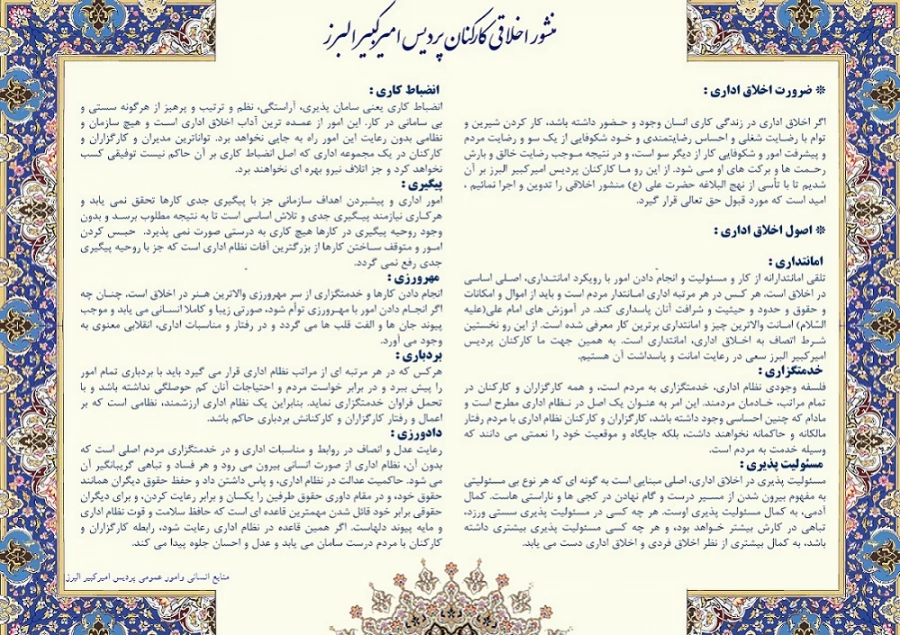 منشور اخلاقی کارکنان پردیس امیرکبیر البرز
❊ ضرورت اخلاق اداری :
اگر اخلاق اداری در زندگی کاری انسان وجود و حضور داشته باشد، کار کردن شیرین و
توام با رضایت شغلی و احساس رضایتمندی و خود شکوفایی از یک سو و رضایت مردم
و پیشرفت امور و شکوفایی کار از دیگر سو است، و در نتیجه موجب رضایت خالق و بارش
رحمت ها و برکت های او می شود. از این رو ما کارکنان پردیس امیرکبیر البرز بر آن
شدیم تا با تأسی از نهج البلاغه حضرت علی (ع) منشور اخلاقی را تدوین و اجرا نمائیم ،
امید است که مورد قبول حق تعالی قرار گیرد.
❊ اصول اخلاق اداری :
امانتداری :
تلقی امانتدارانه از کار و مسئولیت و انجام دادن امور با رویکرد امانتداری، اصلی اساسی
در اخلاق است. هر کس در هر مرتبه اداری امانتدار مردم است و باید از اموال و امکانات
و حقوق و حدود و حیثیت و شرافت آنان پاسداری کند. در آموزش های امام علی(علیه
السّلام) امانت والاترین چیز و امانتداری برترین کار معرفی شده است. از این رو نخستین
شرط اتصاف به اخلاق اداری، امانتداری است. به همین جهت ما کارکنان پردیس
امیرکبیر البرز سعی در رعایت امانت و پاسداشت آن هستیم.
خدمتگزاری :
فلسفه وجودی نظام اداری، خدمتگزاری به مردم است، و همه کارگزاران و کارکنان در
تمام مراتب، خادمان مردمند. این امر به عنوان یک اصل در نظام اداری مطرح است و
مادام که چنین احساسی وجود داشته باشد، کارگزاران و کارکنان نظام اداری با مردم رفتار
مالکانه و حاکمانه نخواهند داشت، بلکه جایگاه و موقعیت خود را نعمتی می دانند که
وسیله خدمت به مردم است.
مسئولیت پذیری :
مسئولیت پذیری در اخلاق اداری، اصلی مبنایی است به گونه ای که هر نوع بی مسئولیتی
به مفهوم بیرون شدن از مسیر درست و گام نهادن در کجی ها و ناراستی هاست. کمال
آدمی، به کمال مسئولیت پذیری اوست. هر چه کسی در مسئولیت پذیری سستی ورزد،
تباهی در کارش بیشتر خواهد بود، و هر چه کسی مسئولیت پذیری بیشتری داشته
باشد، به کمال بیشتری از نظر اخلاق فردی و اخلاق اداری دست می یابد.
انضباط کاری :
انضباط کاری یعنی سامان پذیری، آراستگی، نظم و ترتیب و پرهیز از هرگونه سستی و
بی سامانی در کار. این امور از عمده ترین آداب اخلاق اداری است و هیچ سازمان و
نظامی بدون رعایت این امور راه به جایی نخواهد برد. تواناترین مدیران و کارگزاران و
کارکنان در یک مجموعه اداری که اصل انضباط کاری بر آن حاکم نیست توفیقی کسب
نخواهد کرد و جز اتلاف نیرو بهره ای نخواهند برد.
پیگیری :
امور اداری و پیشبردن اهداف سازمانی جز با پیگیری جدی کارها تحقق نمی یابد و
هرکاری نیازمند پیگیری جدی و تلاش اساسی است تا به نتیجه مطلوب برسد و بدون
وجود روحیه پیگیری در کارها هیچ کاری به درستی صورت نمی پذیرد. حبس کردن
امور و متوقف ساختن کارها از بزرگترین آفات نظام اداری است که جز با روحیه پیگیری
جدی رفع نمی گردد.
مهرورزی :
انجام دادن کارها و خدمتگزاری از سر مهرورزی والاترین هنر در اخلاق است، چنان چه
اگر انجام دادن امور با مهرورزی توأم شود، صورتی زیبا و کاملا انسانی می یابد و موجب
پیوند جان ها و الفت قلب ها می گردد و در رفتار و مناسبات اداری، انقلابی معنوی به
وجود می آورد.
بردباری :
هرکس که در هر مرتبه ای از مراتب نظام اداری قرار می گیرد باید با بردباری تمام امور
را پیش ببرد و در برابر خواست مردم و احتیاجات آنان کم حوصلگی نداشته باشد و با
تحمل فراوان خدمتگزاری نماید. بنابراین یک نظام اداری ارزشمند، نظامی است که بر
اعمال و رفتار کارگزاران و کارکنانش بردباری حاکم باشد.
دادورزی :
رعایت عدل و انصاف در روابط و مناسبات اداری و در خدمتگزاری مردم اصلی است که
بدون آن، نظام اداری از صورت انسانی بیرون می رود و هر فساد و تباهی گریبانگیر آن
می شود. حاکمیت عدالت در نظام اداری، و پاس داشتن داد و حفظ حقوق دیگران همانند
حقوق خود، و در مقام داوری حقوق طرفین را یکسان و برابر رعایت کردن، و برای دیگران
حقوقی برابر خود قائل شدن مهمترین قاعده ای است که حافظ سلامت و قوت نظام اداری
و مایه پیوند دلهاست. اگر همین قاعده در نظام اداری رعایت شود، رابطه کارگزاران و
کارکنان با مردم درست سامان می یابد و عدل و احسان جلوه پیدا می کند.
منابع انسانی وامور عمومی پردیس امیرکبیر البرز